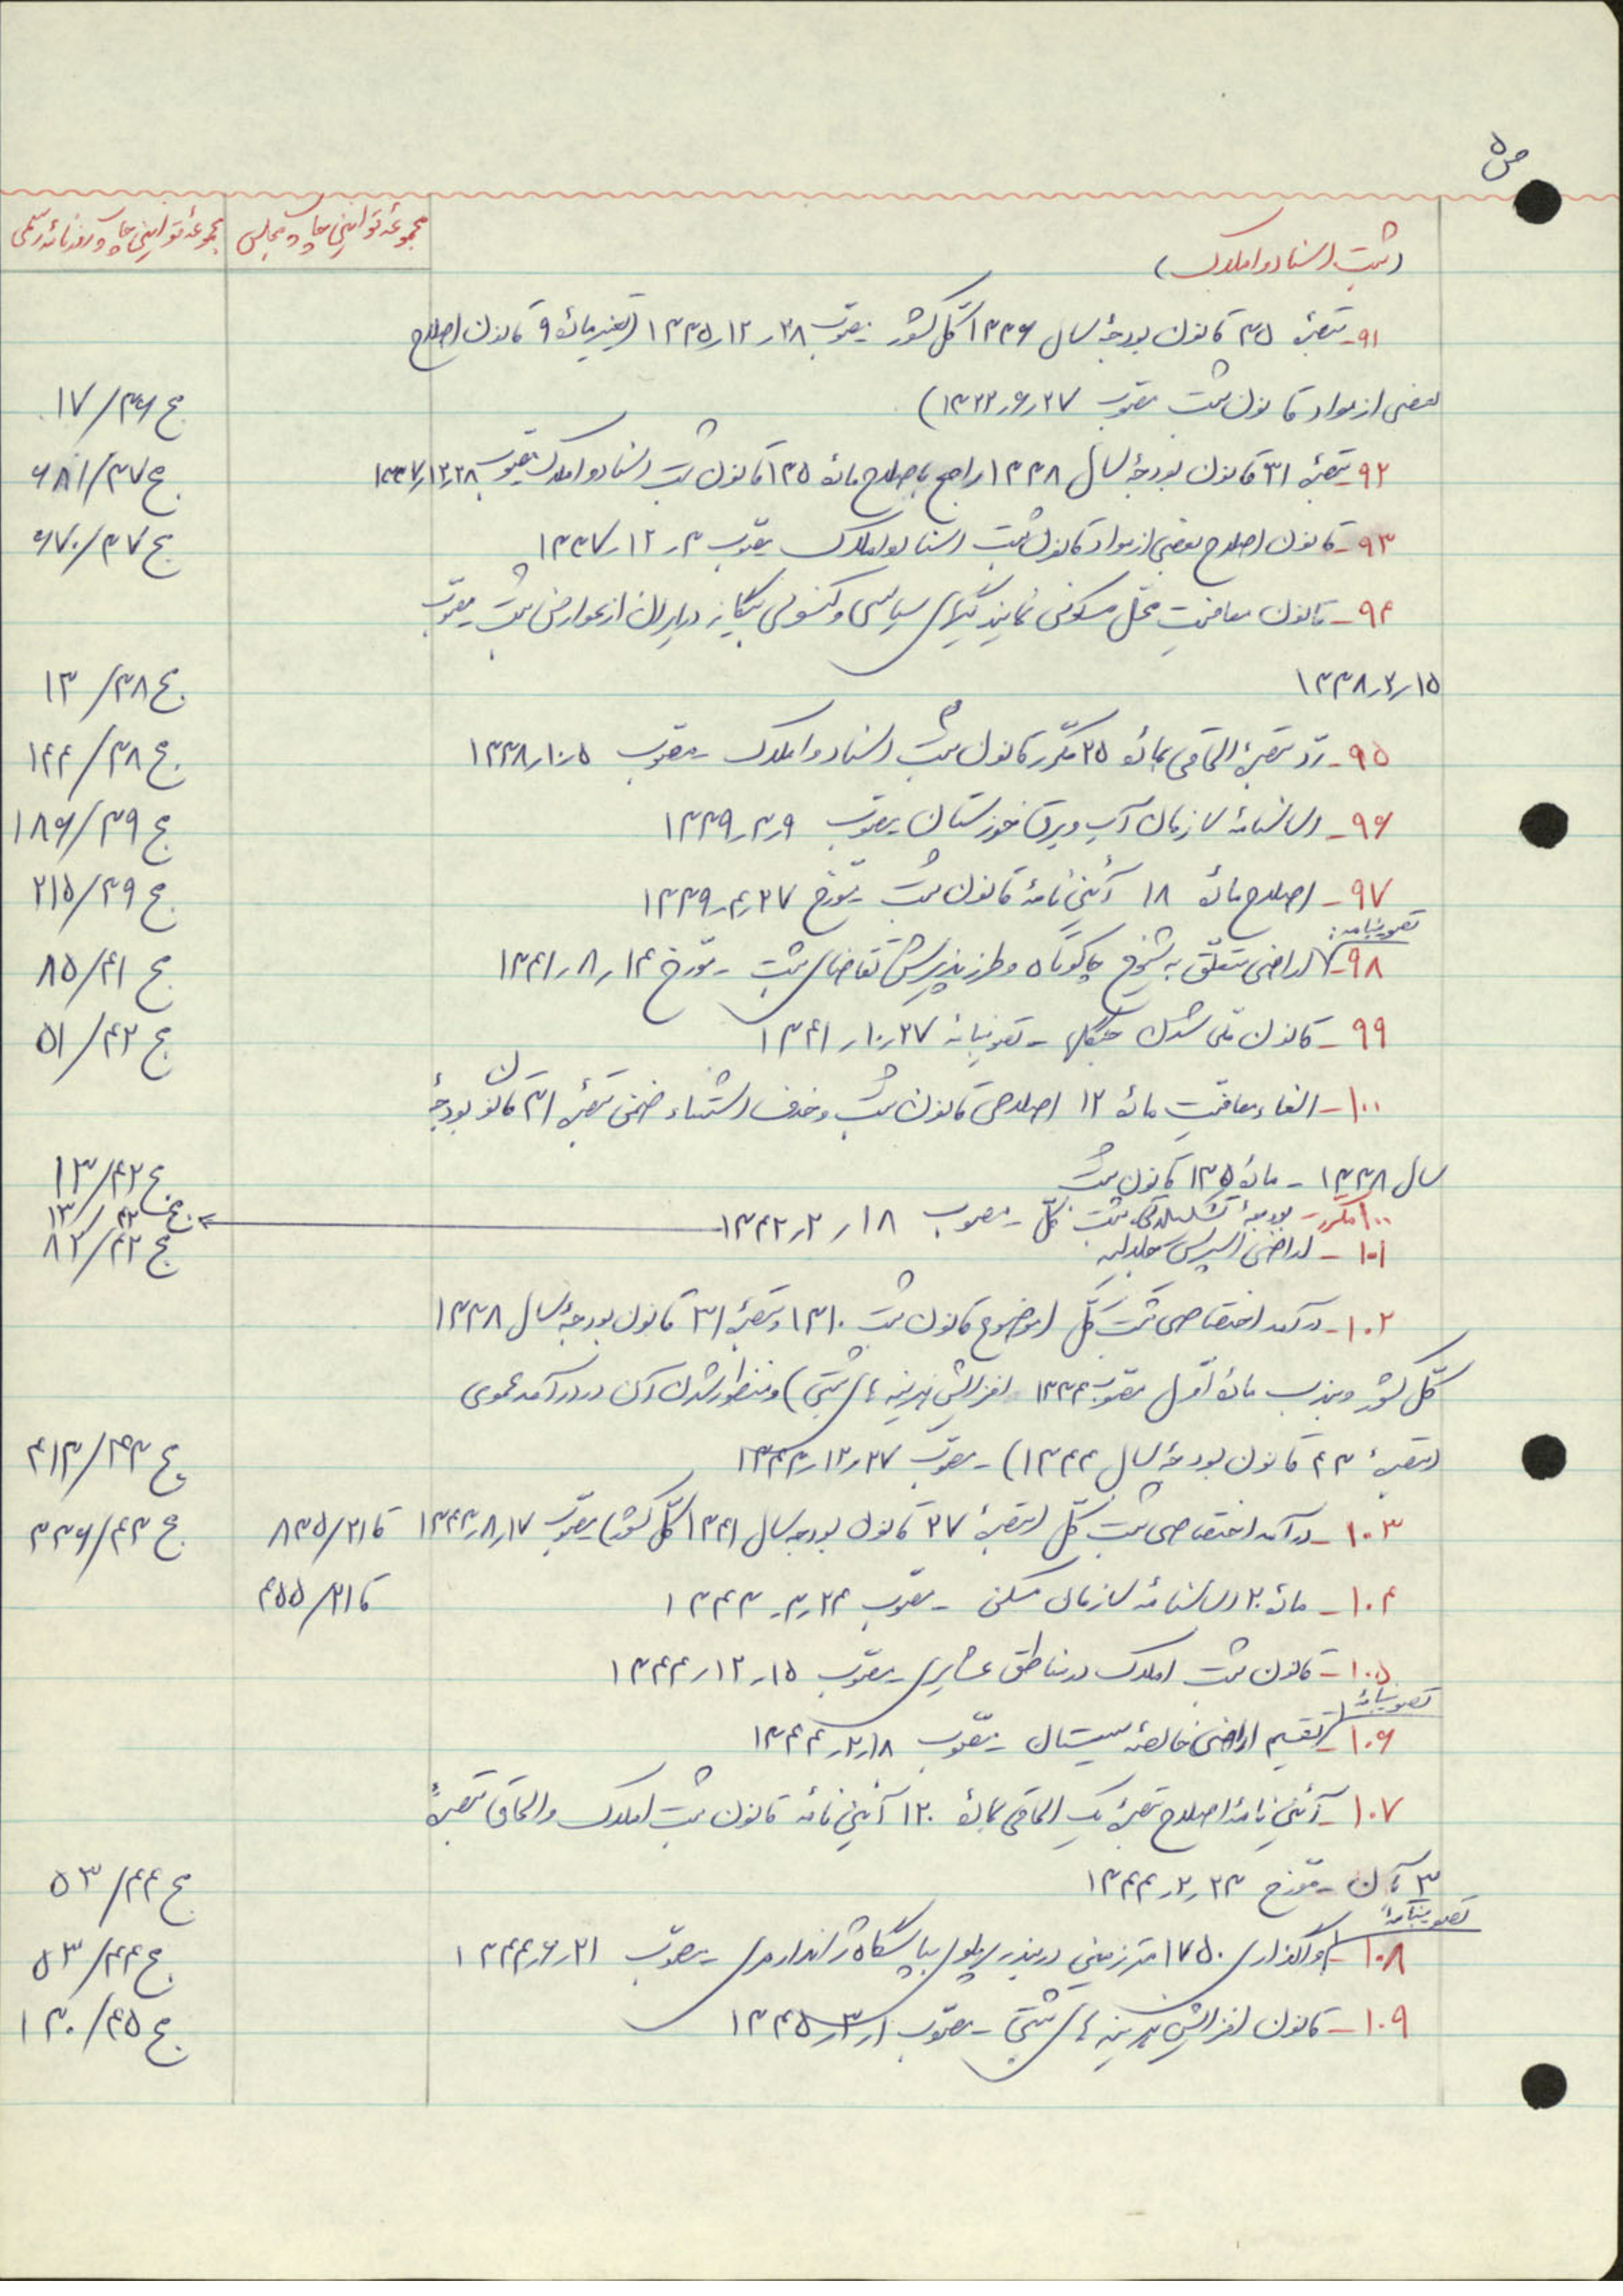 ص ۵
مجموعهٔ قوانین چاپ مجلس
مجموعهٔ قوانین چاپ روزنامه رسمی
(ثبت اسناد و املاک)
۹۱- تبصرهٔ ۳۵ قانون بودجهٔ سال ۱۳۳۶ کل کشور مصوّب ۲۸ر۱۲ر۱۳۳۵ (تغییر مادهٔ ۹ قانون اصلاح
بعضی از مواد قانون ثبت مصوّب ۲۷ر۶ر۱۳۲۲) ج ۳۶/۱۷
۹۲- تبصرهٔ ۳۱ قانون بودجهٔ سال ۱۳۳۸ راجع باصلاح مادهٔ ۱۳۵ قانون ثبت اسناد و املاک مصوّب ۲۸ر۱۲ر۱۳۳۷ ج ۳۷/۶۸۱
۹۳- قانون اصلاح بعضی از مواد قانون ثبت اسناد و املاک مصوّب ۳ر۱۲ر۱۳۳۷ ج ۳۷/۶۷۰
۹۴- قانون معافیت محلّ سکونی نمایندگیهای سیاسی و کنسولی بیگانه در ایران از عوارض ثبت مصوّب
۱۵ر۲ر۱۳۳۸ ج ۳۸/۱۳
۹۵- ردّ تبصرهٔ الحاقی بمادهٔ ۲۵ مکرّر قانون ثبت اسناد و املاک - مصوّب ۵ر۱۰ر۱۳۳۸ ج ۳۸/۱۴۴
۹۶- اساسنامهٔ سازمان آب و برق خوزستان مصوّب ۹ر۳ر۱۳۳۹ ج ۳۹/۱۸۶
۹۷- اصلاح مادهٔ ۱۸ آئین‌نامهٔ قانون ثبت - مورّخ ۲۷ر۴ر۱۳۳۹ ج ۳۹/۲۱۵
تصویبنامه:
۹۸- اراضی متعلّق به شیوخ چاکوتاه و طرز پذیرش تقاضای ثبت - مورّخ ۱۴ر۸ر۱۳۴۱ ج ۴۱/۸۵
۹۹- قانون ملّی شدن جنگلها - تصویبنامه ۲۷ر۱۰ر۱۳۴۱ ج ۴۲/۵۱
۱۰۰- الغاء معافیت مادهٔ ۱۲ اصلاحی قانون ثبت و حذف استثناء ضمن تبصرهٔ ۳۱ قانون بودجهٔ
سال ۱۳۳۸ - مادهٔ ۱۳۵ قانون ثبت ج ۴۲/۱۳
۱۰۰ مکرّر- بودجهٔ تشکیلاتی ثبت کلّ - مصوب ۱۸ر۲ر۱۳۴۲ ج ۴۲/۱۳
۱۰۱- اراضی اسپرس جلالیه ج ۴۲/۸۲
۱۰۲- درآمد اختصاصی ثبت کلّ (موضوع قانون ثبت ۱۳۱۰ و تبصرهٔ ۳۱ قانون بودجهٔ سال ۱۳۳۸
کلّ کشور و بند ب مادهٔ اوّل مصوّب ۱۳۳۴ افزایش هزینه‌های ثبتی) و منظور شدن آن در درآمد عمومی
(تبصرهٔ ۴۳ قانون بودجهٔ سال ۱۳۴۴) - مصوّب ۲۷ر۱۲ر۱۳۴۳ ج ۴۳/۴۱۳
۱۰۳- درآمد اختصاصی ثبت کلّ (تبصرهٔ ۲۷ قانون بودجه سال ۱۳۴۱ کلّ کشور) مصوّب ۱۷ر۸ر۱۳۴۳ قا ۲۱/۸۳۵ ج ۴۳/۳۳۶
۱۰۴- مادهٔ ۲۰ اساسنامهٔ سازمان مسکن - مصوّب ۲۴ر۳ر۱۳۴۳ قا ۲۱/۴۵۵
۱۰۵- قانون ثبت املاک در مناطق عشایری - مصوّب ۱۵ر۱۲ر۱۳۴۴
تصویبنامهٔ
۱۰۶- تقسیم اراضی خالصهٔ سیستان - مصوّب ۱۸ر۲ر۱۳۴۴
۱۰۷- آئین‌نامهٔ اصلاح تبصرهٔ یک الحاقی بمادهٔ ۱۲۰ آئین‌نامه قانون ثبت املاک و الحاق تبصرهٔ
۳ بآن - مورّخ ۲۳ر۲ر۱۳۴۴ ج ۴۴/۵۳
تصویبنامهٔ
۱۰۸- واگذاری ۱۷۵۰ متر زمین در بندر پهلوی بپاسگاه ژاندارمری - مصوّب ۲۱ر۶ر۱۳۴۴ ج ۴۴/۵۳
۱۰۹- قانون افزایش هزینه‌های ثبتی - مصوّب ۱ر۳ر۱۳۴۵ ج ۴۵/۱۳۰